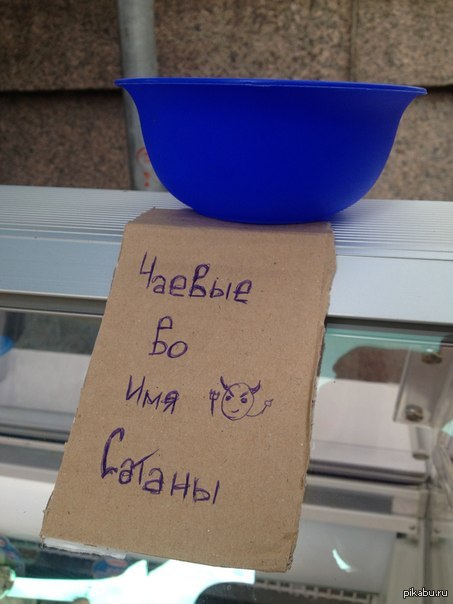 Чаевые
во
имя
Сатаны
pikabu.ru